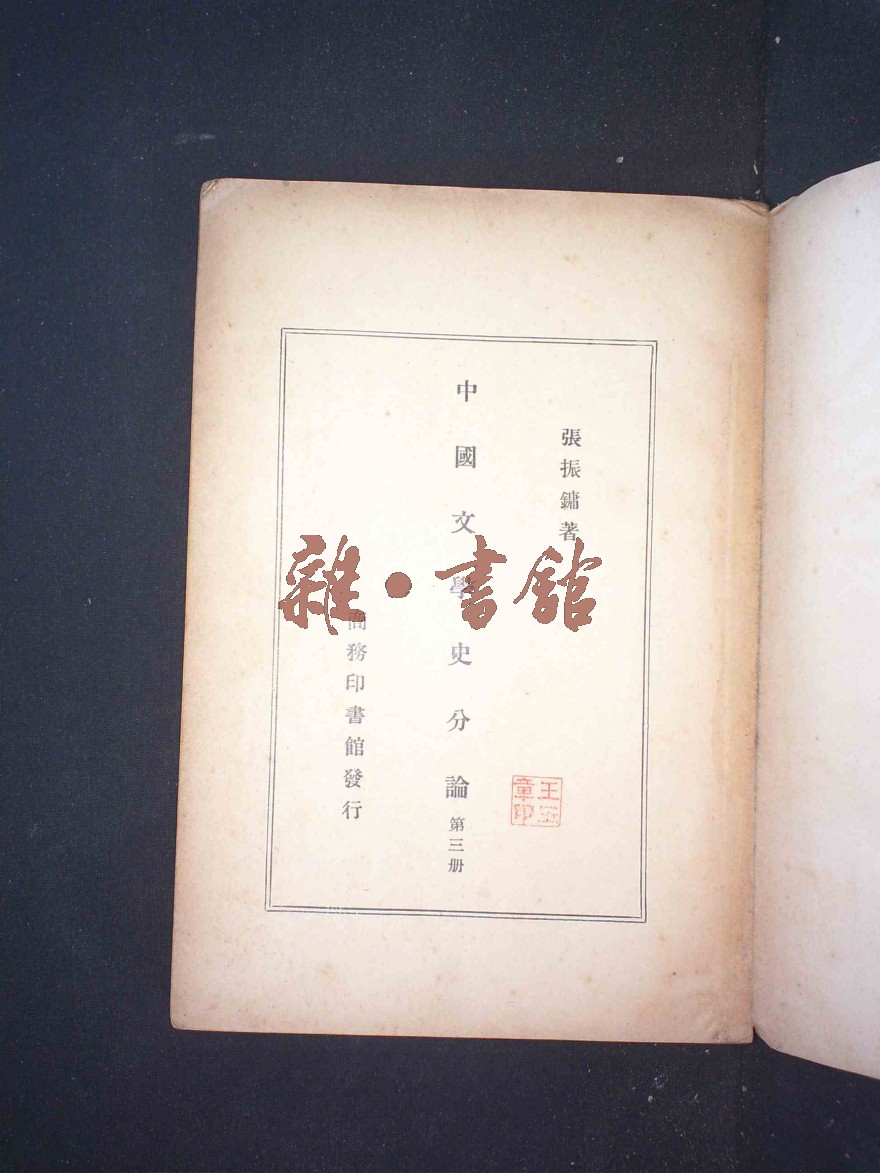 張振鏞著
中國文學史分論 第三册
商務印書館發行
雜·書館
王
章印